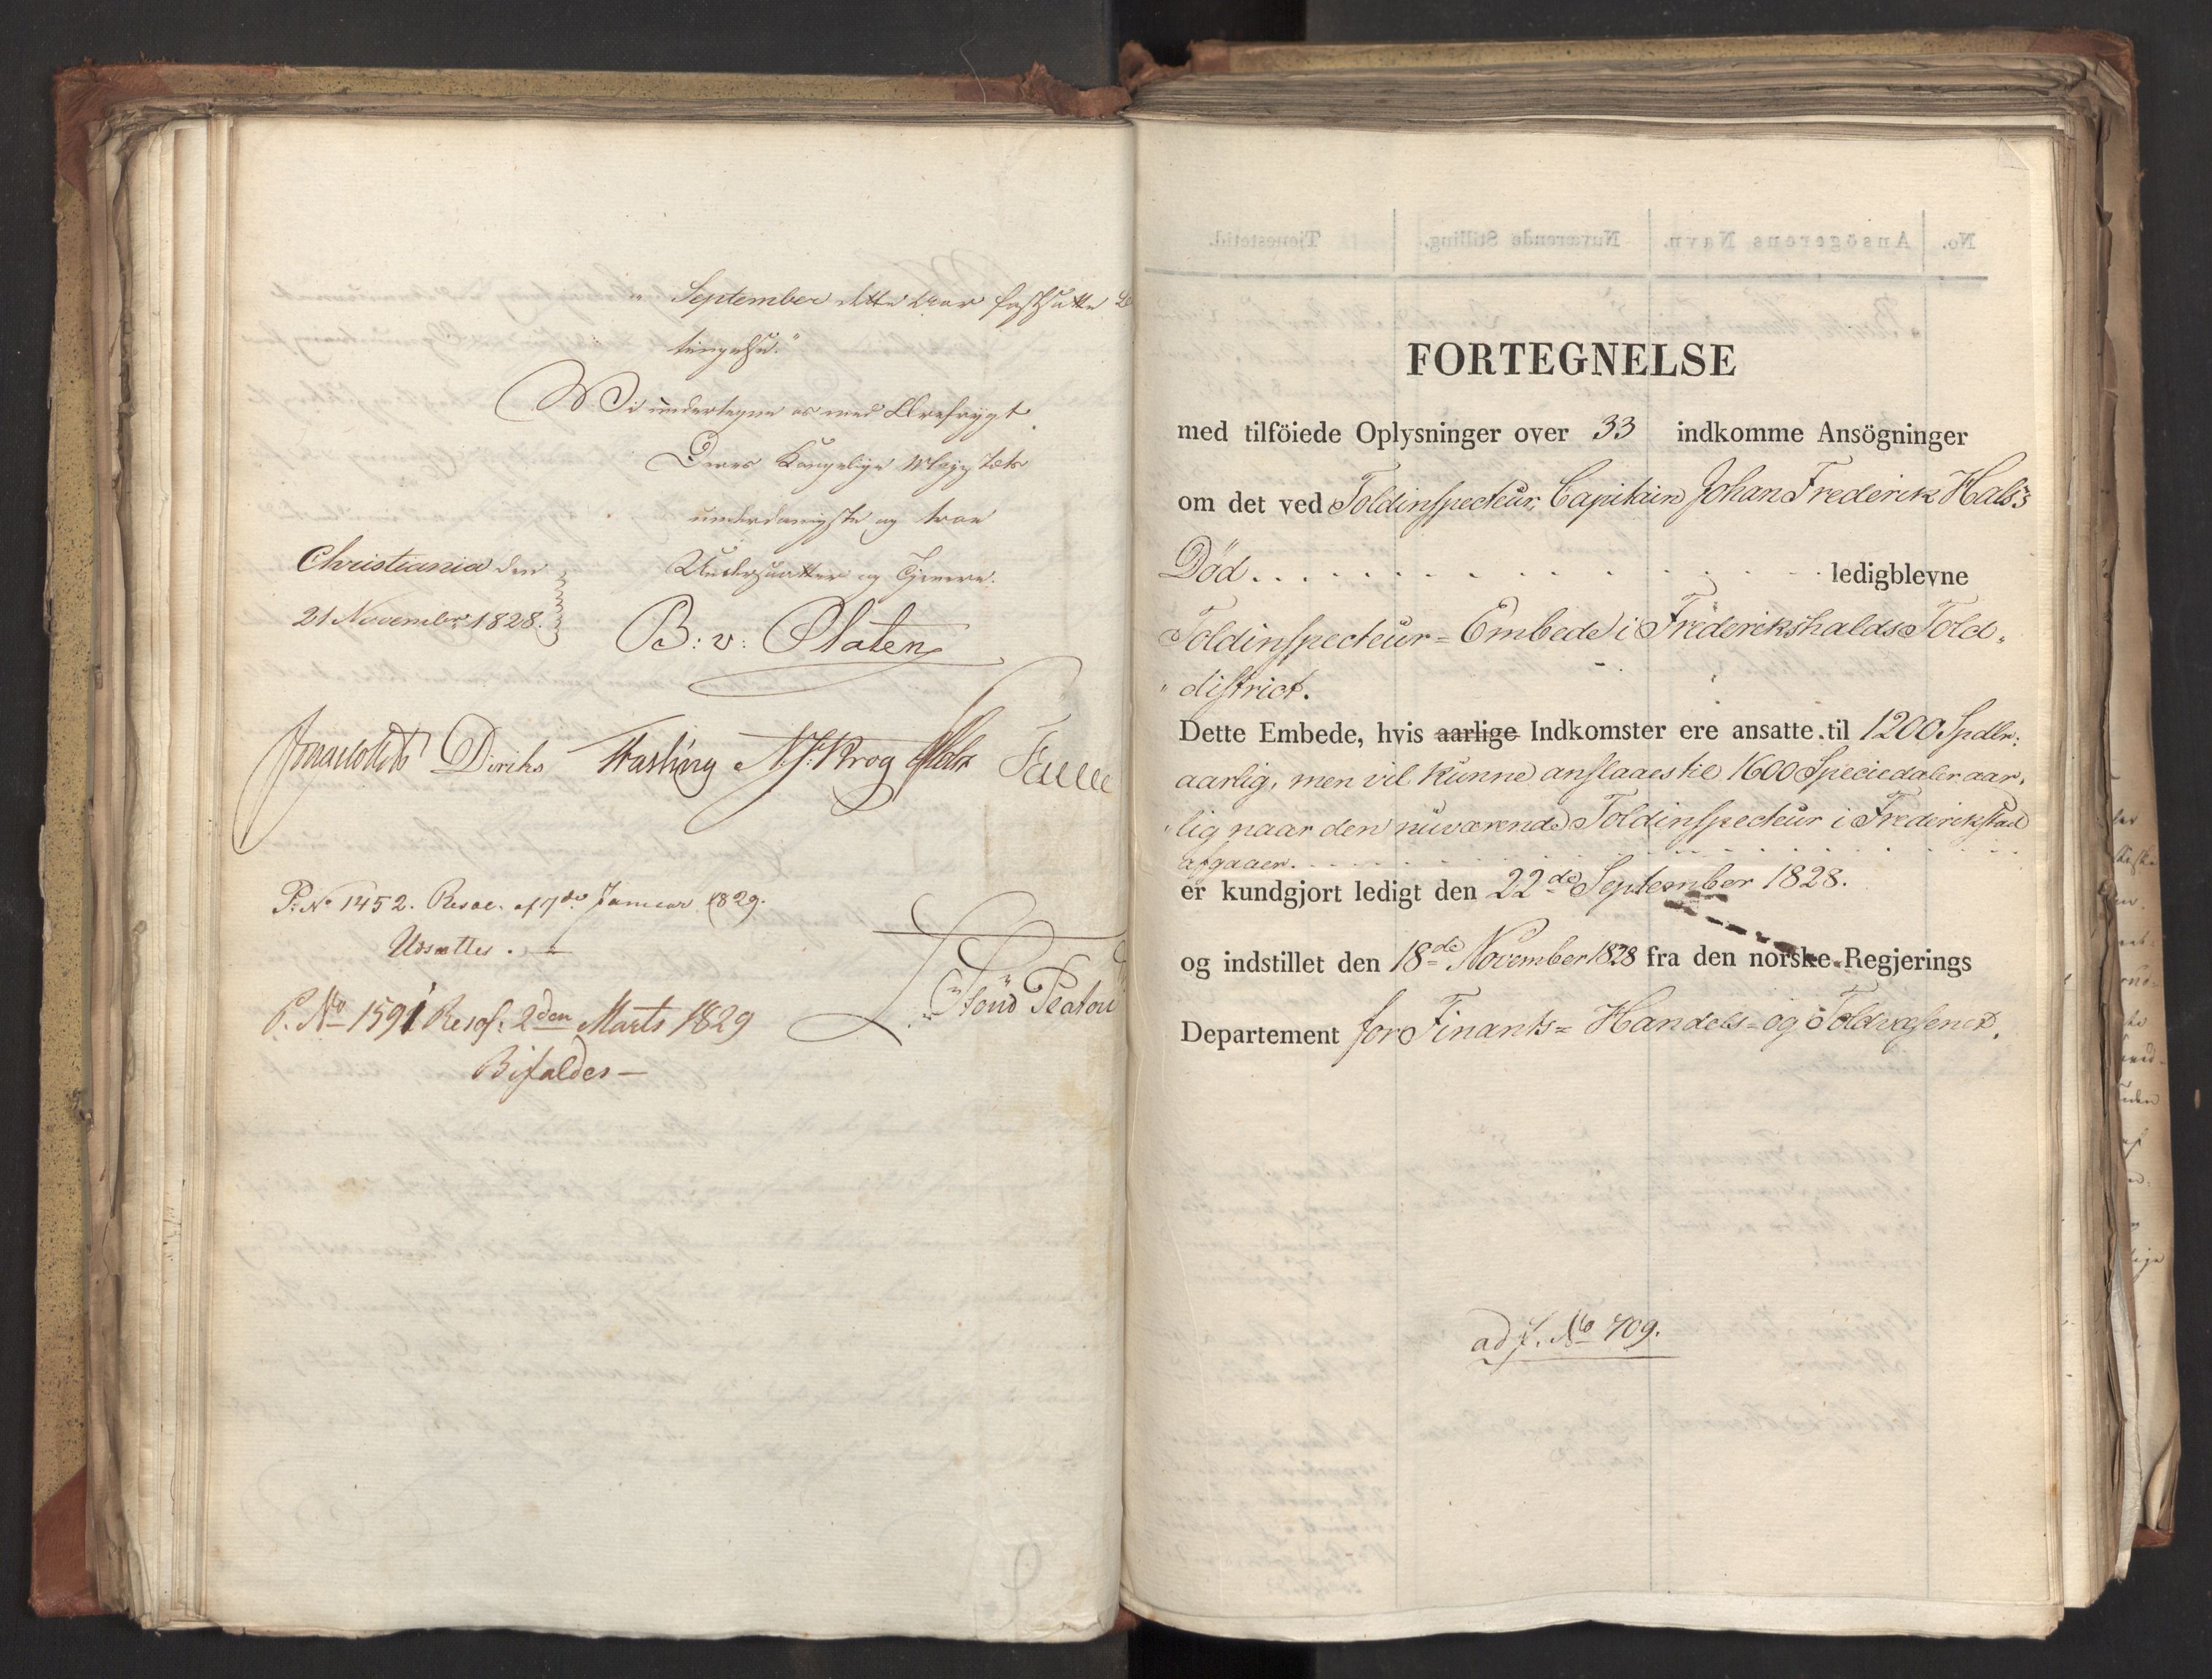 September dette Aar fastsatte Be
tingelse."
Vi undertegne os med Ærefrygt
Deres Kongelige Majestæts
underdanigste og troe
Undersaatter og Tjenere.
Christiania den
21 Novembr 1828.
B: v: Platen
Diriks Fasting N. J. Krog
P: No 1452. Resol. af 7de Januar 1829.
Udsættes.
P. No 1591 Resol: 2den Marts 1829
Bifaldes —
FORTEGNELSE
med tilföiede Oplysninger over 33 indkomne Ansögninger
om det ved Toldinspecteur, Capitain Johan Frederik Hals's
Død. . . . . . . . . . . . . . . ledigblevne
Toldinspecteur=Embede i Frederikshalds Told-
"district.
Dette Embede, hvis aarlige Indkomster ere ansatte til 1200 Spdlr:
aarlig, men vil kunne anslaaes til 1600 Speciedaler aar-
"lig naar den nuværende Toldinspecteur i Frederikstad
afgaaer. . . . . . . . . . . . . . . .
er kundgjort ledigt den 22de September 1828.
og indstillet den 18de November 1828 fra den norske Regjerings
Departement for Finants= Handels= og Toldvæsenet.
ad J. No 709.
No. Ansögerens Navn. Nuværende Stilling. Tjenestetid.